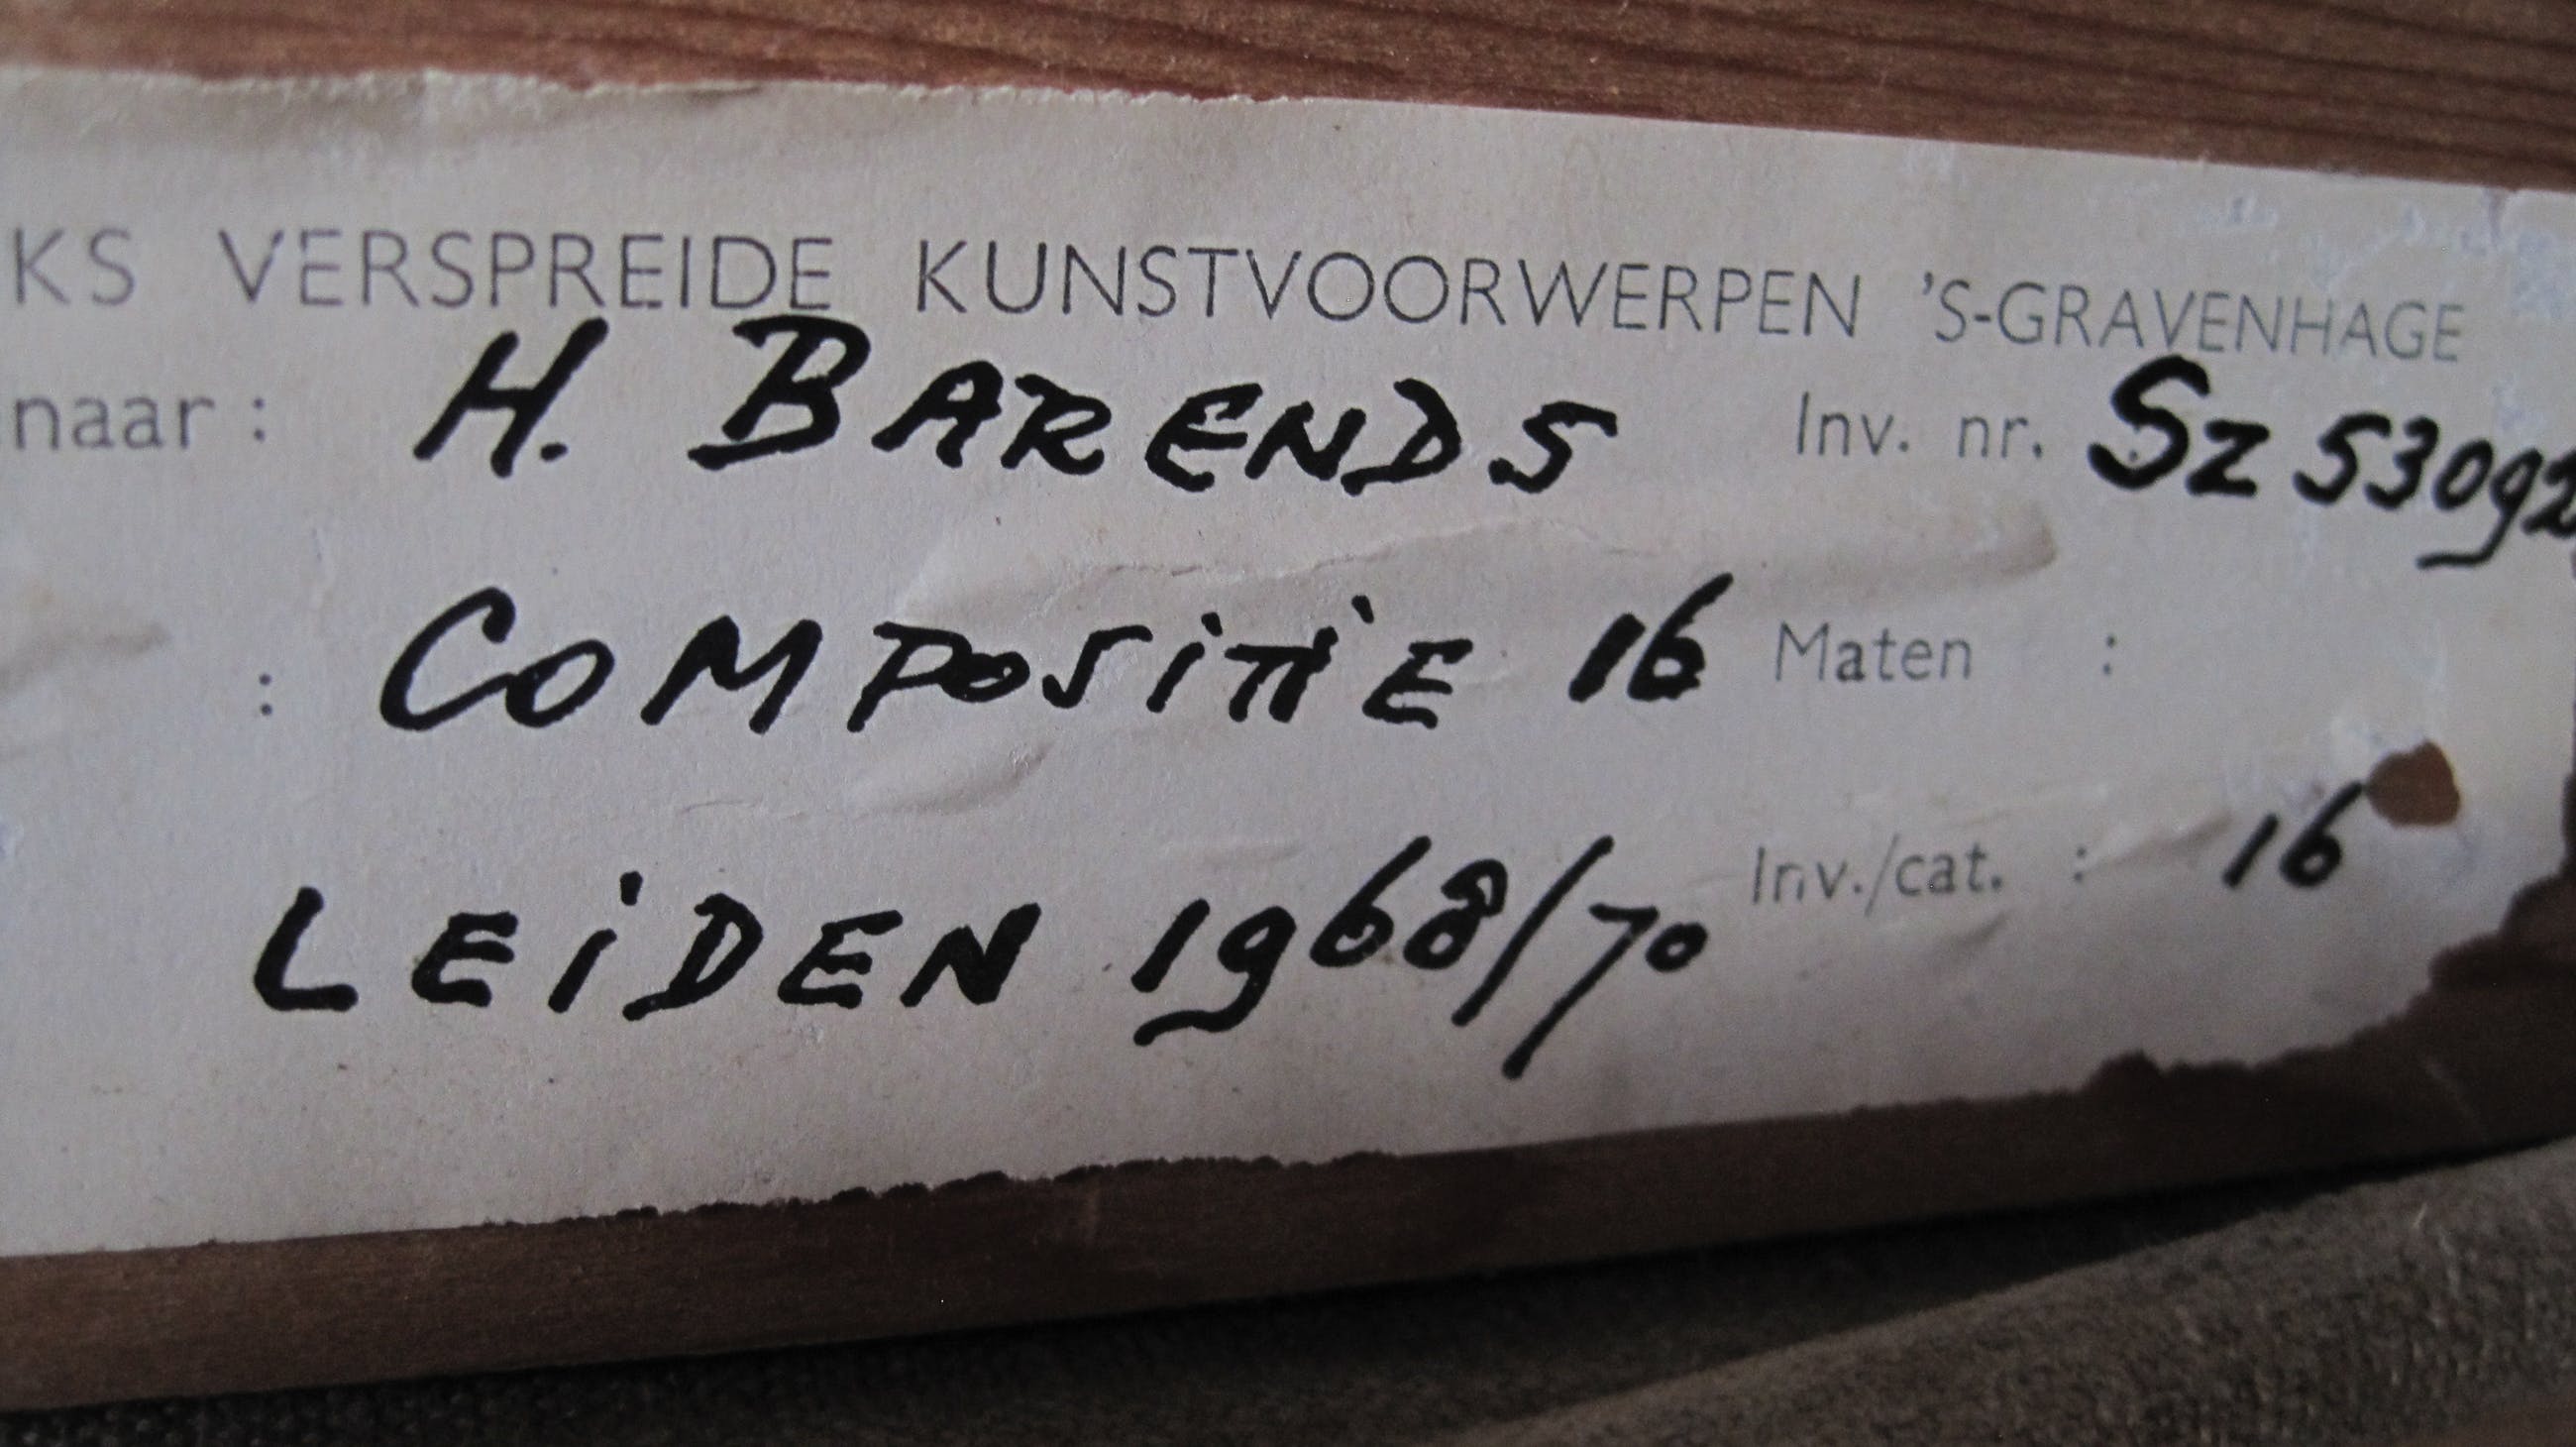 KS VERSPREIDE KUNSTVOORWERPEN 'S-GRAVENHAGE
naar : H. BARENDS Inv. nr. SZ 53092
: COMPOSITIE 16 Maten :
LEIDEN 1968/70 Inv./cat. : 16